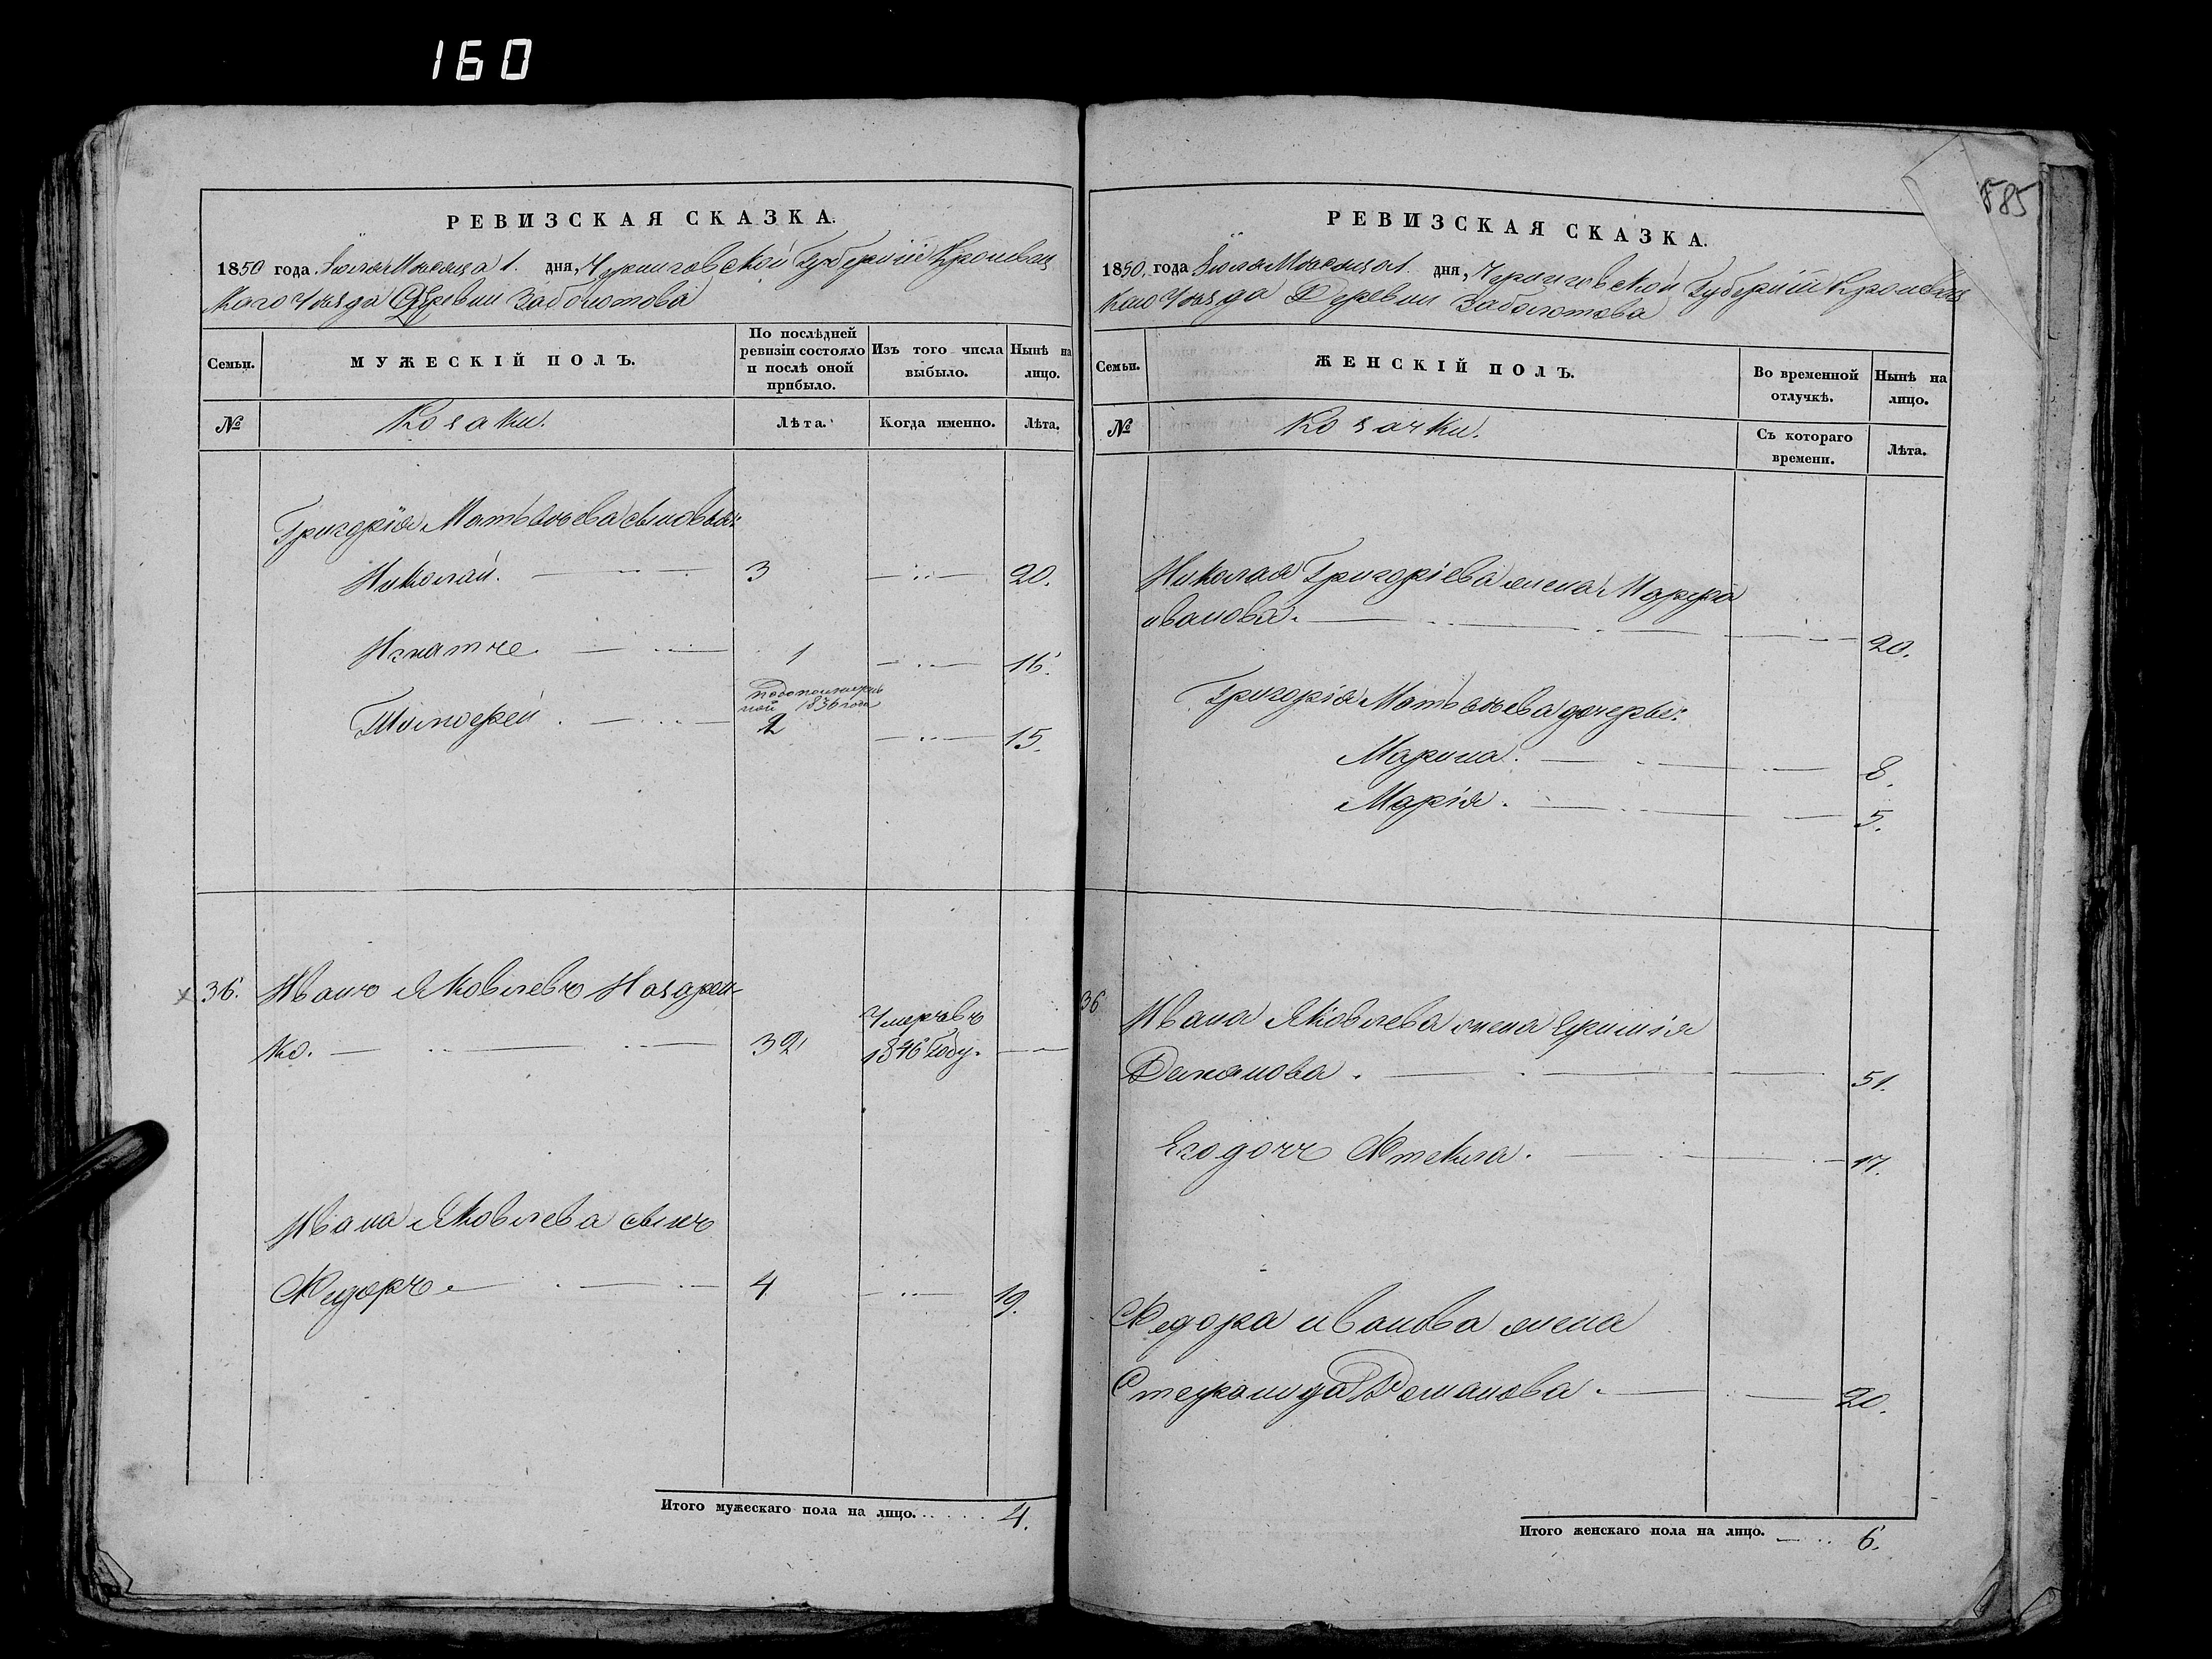 160
885
РЕВИЗСКАЯ СКАЗКА.
1850 года Іюля Мѣсяца 1. дня, Черниговской Губерніи Кролевец
каго Уѣзда Деревни Заболотова
Семьи.
МУЖЕСКІЙ ПОЛЪ.
По послѣдней ревизіи состояло и послѣ оной прибыло.
Изъ того числа выбыло.
Нынѣ на лицо.
№
Козаки.
Лѣта.
Когда именно.
Лѣта.
Григорія Матвѣева сыновья:
Николай. 3 20.
Игнатъ 1 16.
по дополнитель
ной 1836 года
Тимофей. 2 15.
36. Иванъ Яковлевъ Назарен-
ко. 32 Умеръ въ 1846 году.
Ивана Яковлева сынъ
Ѳедоръ. 4 19.
Итого мужескаго пола на лицо. 4.
РЕВИЗСКАЯ СКАЗКА.
1850 года Іюля Мѣсяца 1. дня, Черниговской Губерніи Кролевец
каго Уѣзда Деревни Заболотова
Семьи.
ЖЕНСКІЙ ПОЛЪ.
Во временной отлучкѣ.
Нынѣ на лицо.
№
Козачки.
Съ котораго времени.
Лѣта.
Николая Григоріева жена Марфа
иванова. 20.
Григорія Матвѣева дочеры:
Марина. 8.
Марія. 5.
36 Ивана Яковлева жена Ефимія
Демянова. 51.
Его дочь Ѳтекла. 17.
Ѳедора иванова жена
Стефанида Романова. 20.
Итого женскаго пола на лицо. 6.